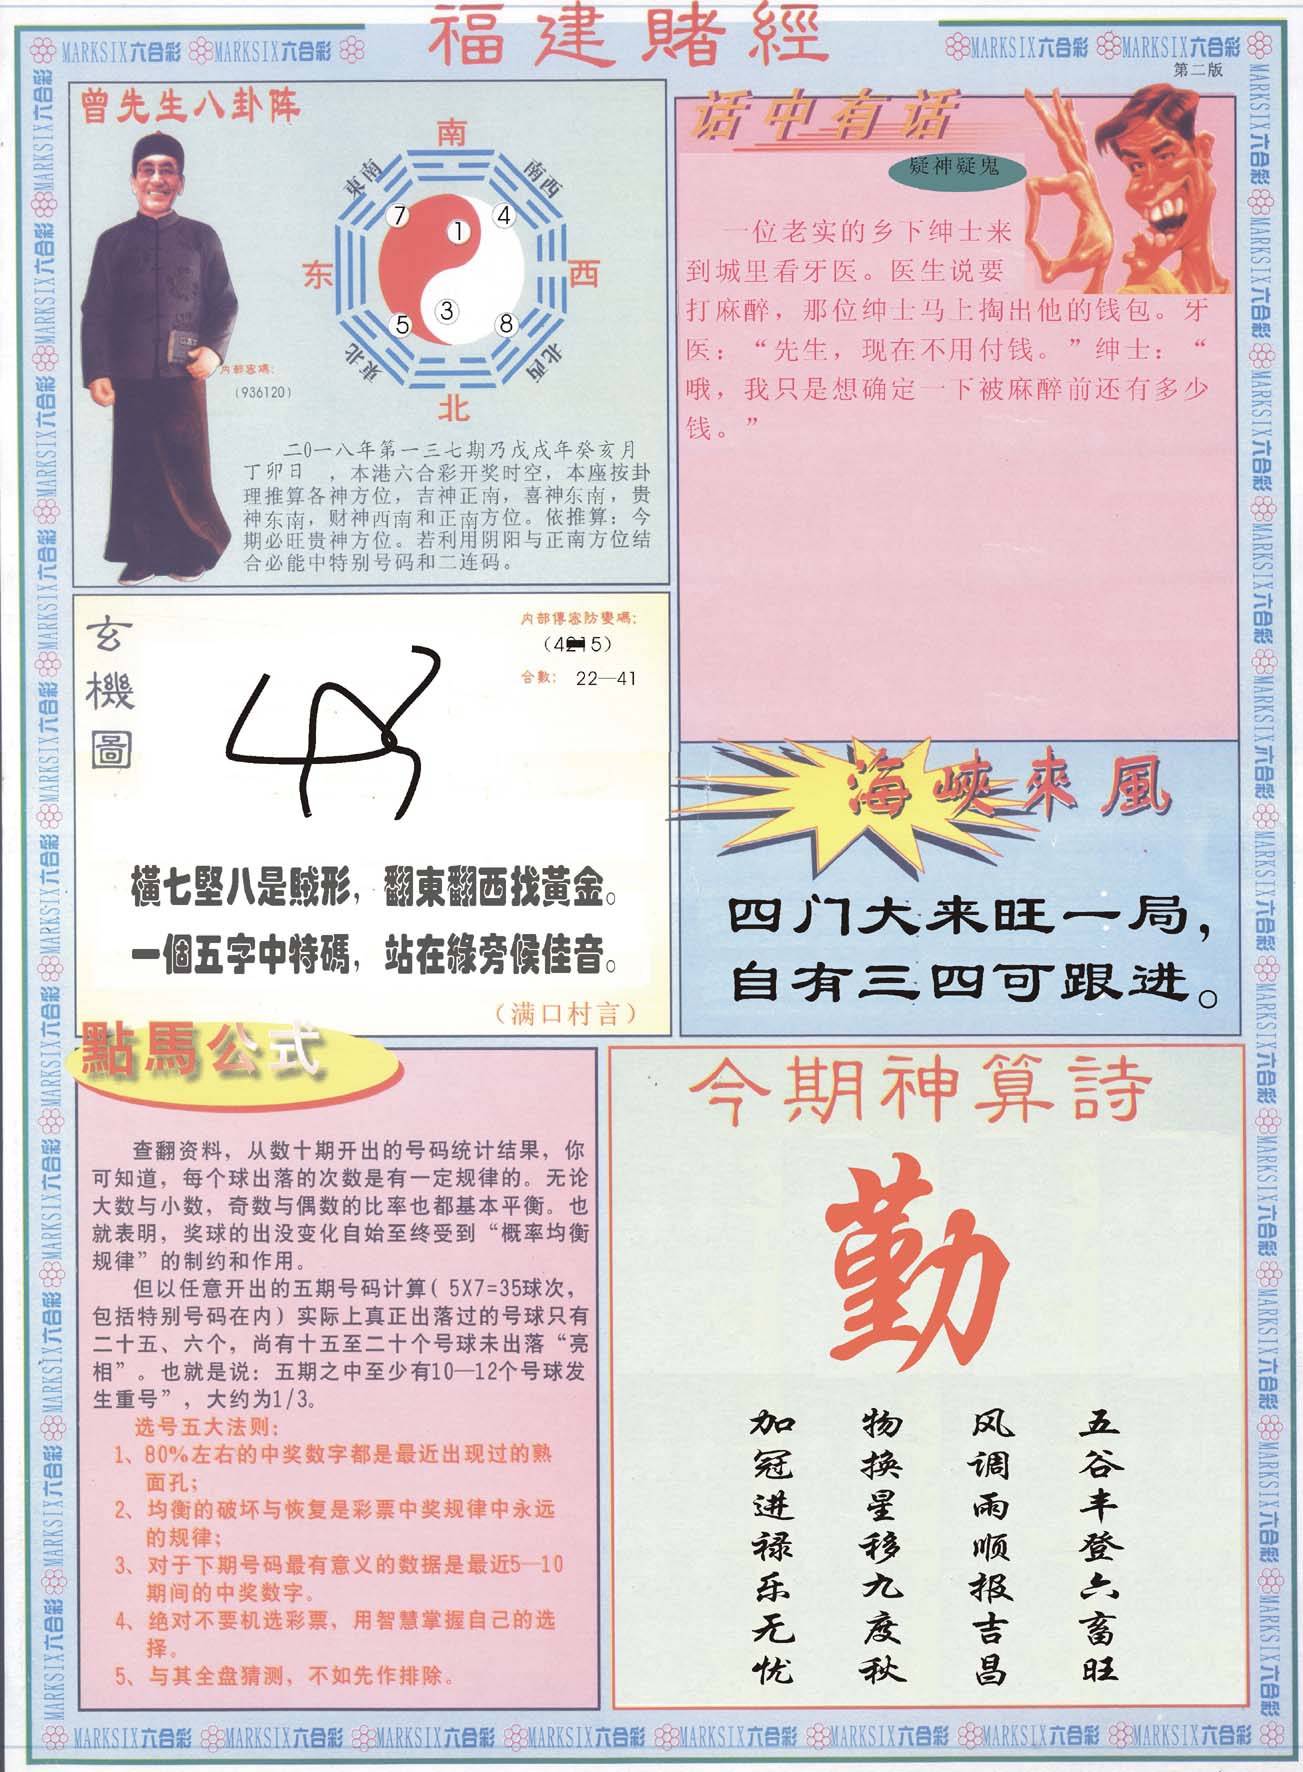 福建賭經
MARKSIX六合彩 MARKSIX六合彩
MARKSIX六合彩 MARKSIX六合彩
第二版
曾先生八卦阵
南
東南
南西
7
1
4
东
西
5
3
8
東北
北西
北
内部密碼：
(936120)
二0一八年第一三七期乃戊戌年癸亥月
丁卯日　，本港六合彩开奖时空，本座按卦
理推算各神方位，吉神正南，喜神东南，贵
神东南，财神西南和正南方位。依推算：今
期必旺贵神方位。若利用阴阳与正南方位结
合必能中特别号码和二连码。
话中有话
疑神疑鬼
一位老实的乡下绅士来
到城里看牙医。医生说要
打麻醉，那位绅士马上掏出他的钱包。牙
医：“先生，现在不用付钱。”绅士：“
哦，我只是想确定一下被麻醉前还有多少
钱。”
玄機圖
内部傳密防變碼：
合數： 22—41
橫七堅八是賊形，翻東翻西找黃金。
一個五字中特碼，站在綠旁候佳音。
（满口村言）
海峽來風
四门大来旺一局，
自有三四可跟进。
點馬公式
查翻资料，从数十期开出的号码统计结果，你
可知道，每个球出落的次数是有一定规律的。无论
大数与小数，奇数与偶数的比率也都基本平衡。也
就表明，奖球的出没变化自始至终受到“概率均衡
规律”的制约和作用。
但以任意开出的五期号码计算( 5X7=35球次，
包括特别号码在内）实际上真正出落过的号球只有
二十五、六个，尚有十五至二十个号球未出落“亮
相”。也就是说：五期之中至少有10—12个号球发
生重号”，大约为1/3。
选号五大法则：
1、80%左右的中奖数字都是最近出现过的熟
面孔；
2、均衡的破坏与恢复是彩票中奖规律中永远
的规律；
3、对于下期号码最有意义的数据是最近5—10
期间的中奖数字。
4、绝对不要机选彩票，用智慧掌握自己的选
择。
5、与其全盘猜测，不如先作排除。
今期神算詩
勤
五谷丰登六畜旺
风调雨顺报吉昌
物换星移九度秋
加冠进禄乐无忧
MARKSIX六合彩 MARKSIX六合彩 MARKSIX六合彩 MARKSIX六合彩 MARKSIX六合彩 MARKSIX六合彩 MARKSIX六合彩 MARKSIX六合彩